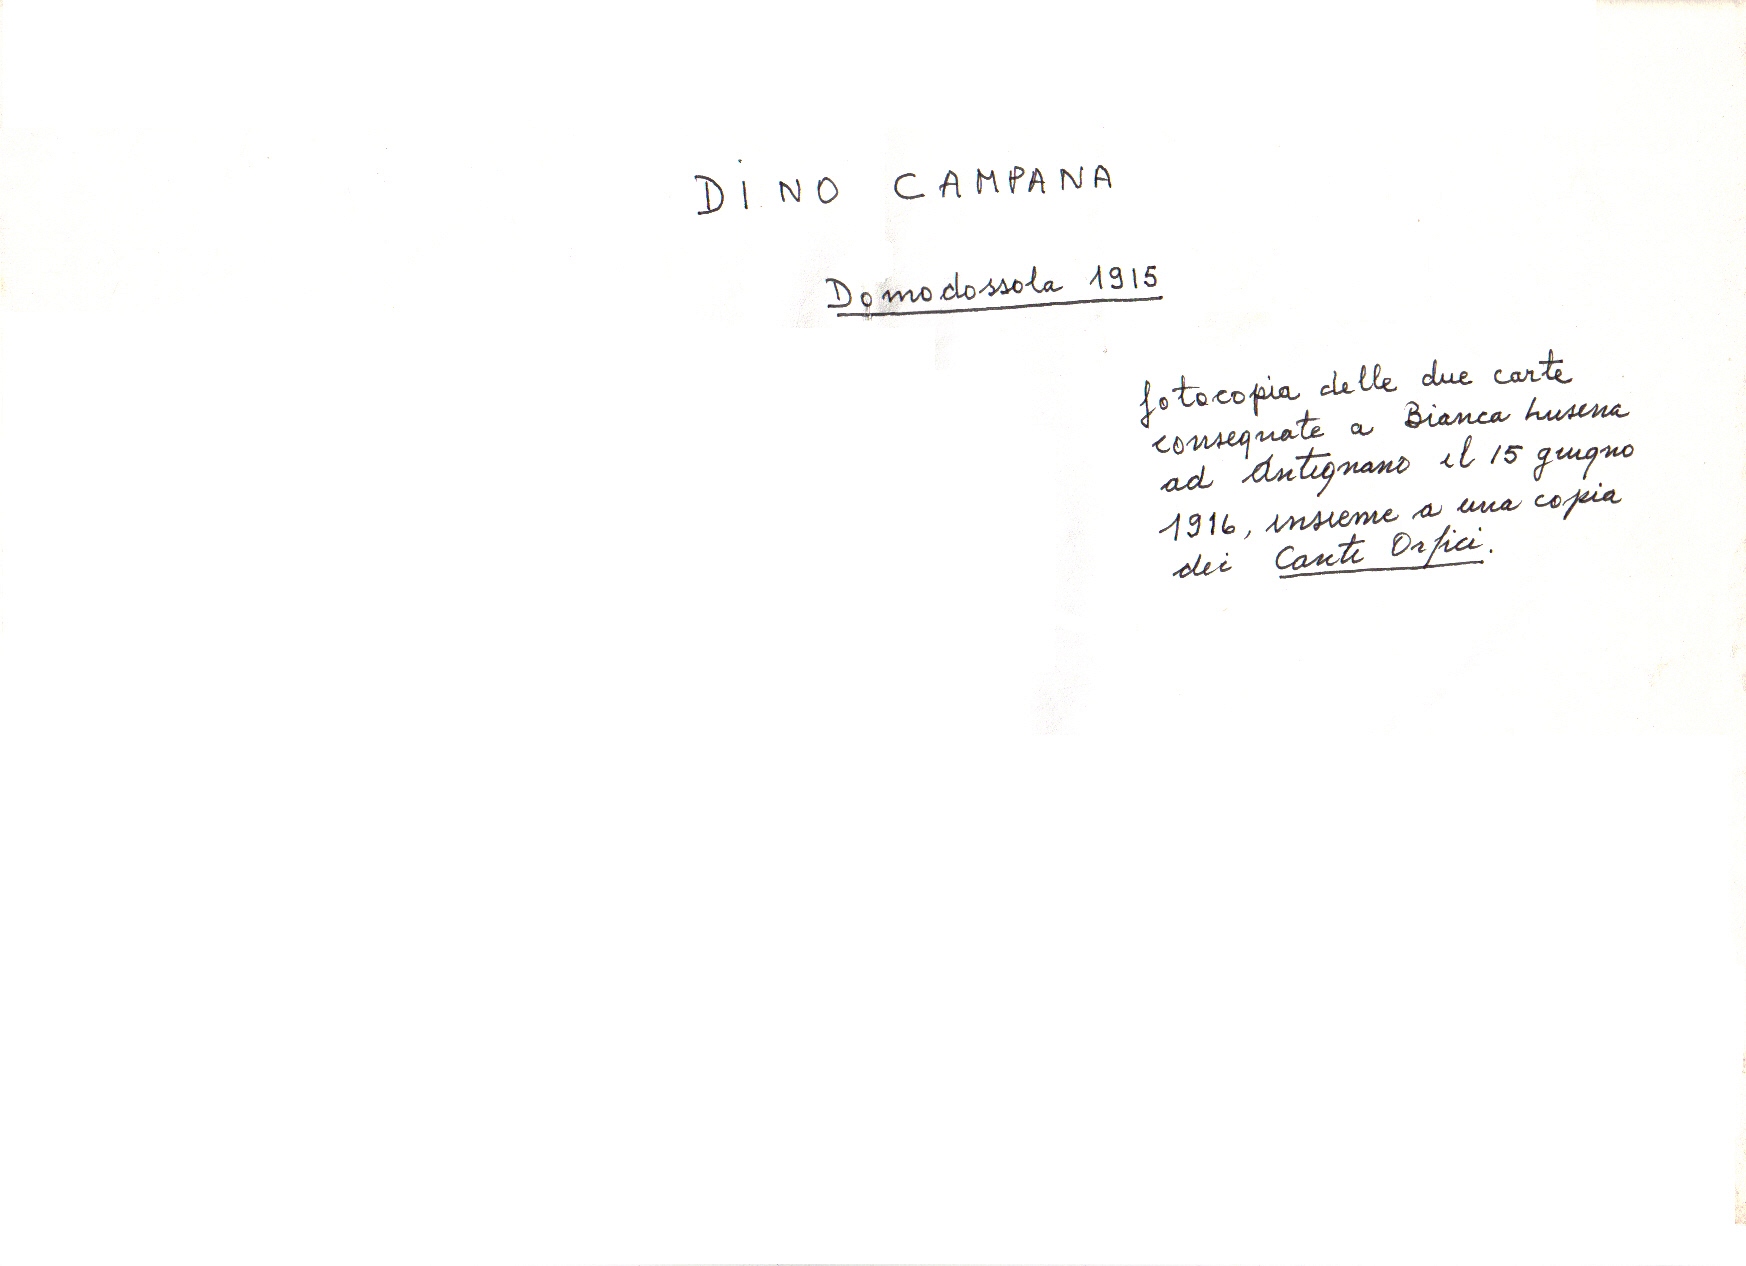 DINO CAMPANA
Domodossola 1915
fotocopia delle due carte
consegnate a Bianca Lusena
ad Antignano il 15 giugno
1916, insieme a una copia
dei Canti Orfici.